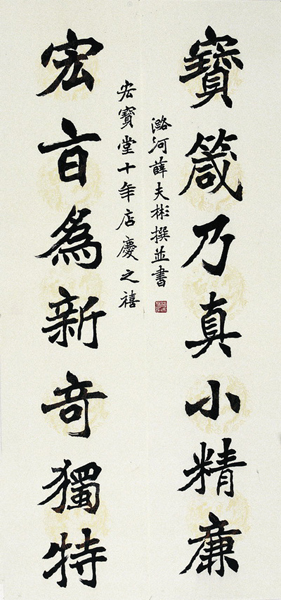 寶箴乃真小精廉
潞河薛夫彬撰並書
宏寶堂十年店慶之禧
宏旨為新竒獨特